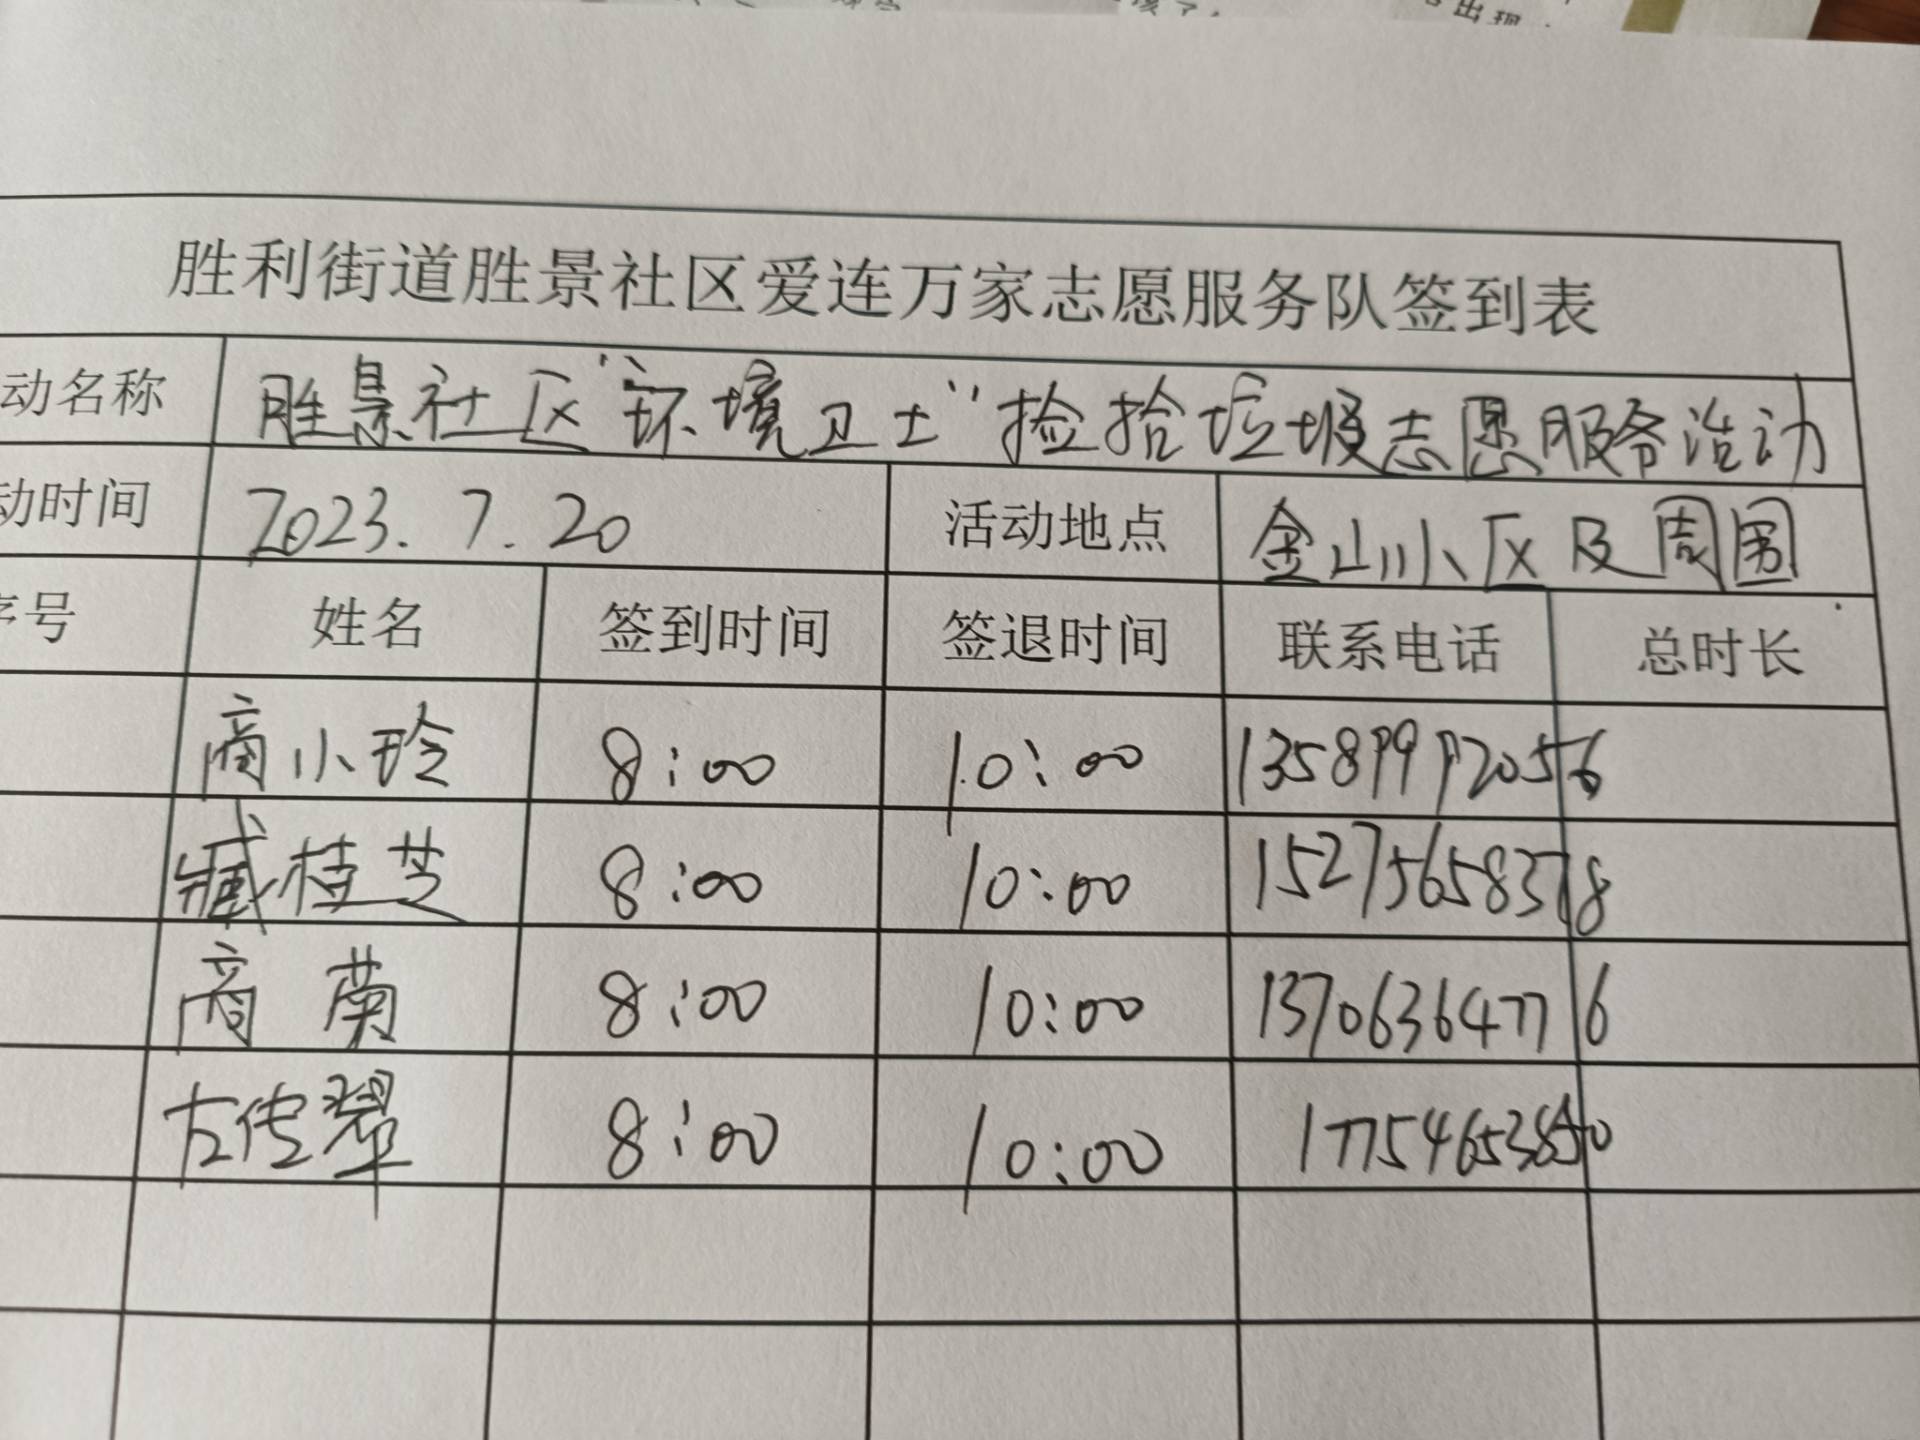 出现
胜利街道胜景社区爱连万家志愿服务队签到表
动名称 胜景社区“环境卫士”捡拾垃圾志愿服务活动
动时间 2023.7.20 活动地点 金山小区及周围
序号 姓名 签到时间 签退时间 联系电话 总时长
商小玲 8:00 10:00 13589992056
臧桂芝 8:00 10:00 15275658378
商菊 8:00 10:00 13706364776
左传翠 8:00 10:00 17754653850